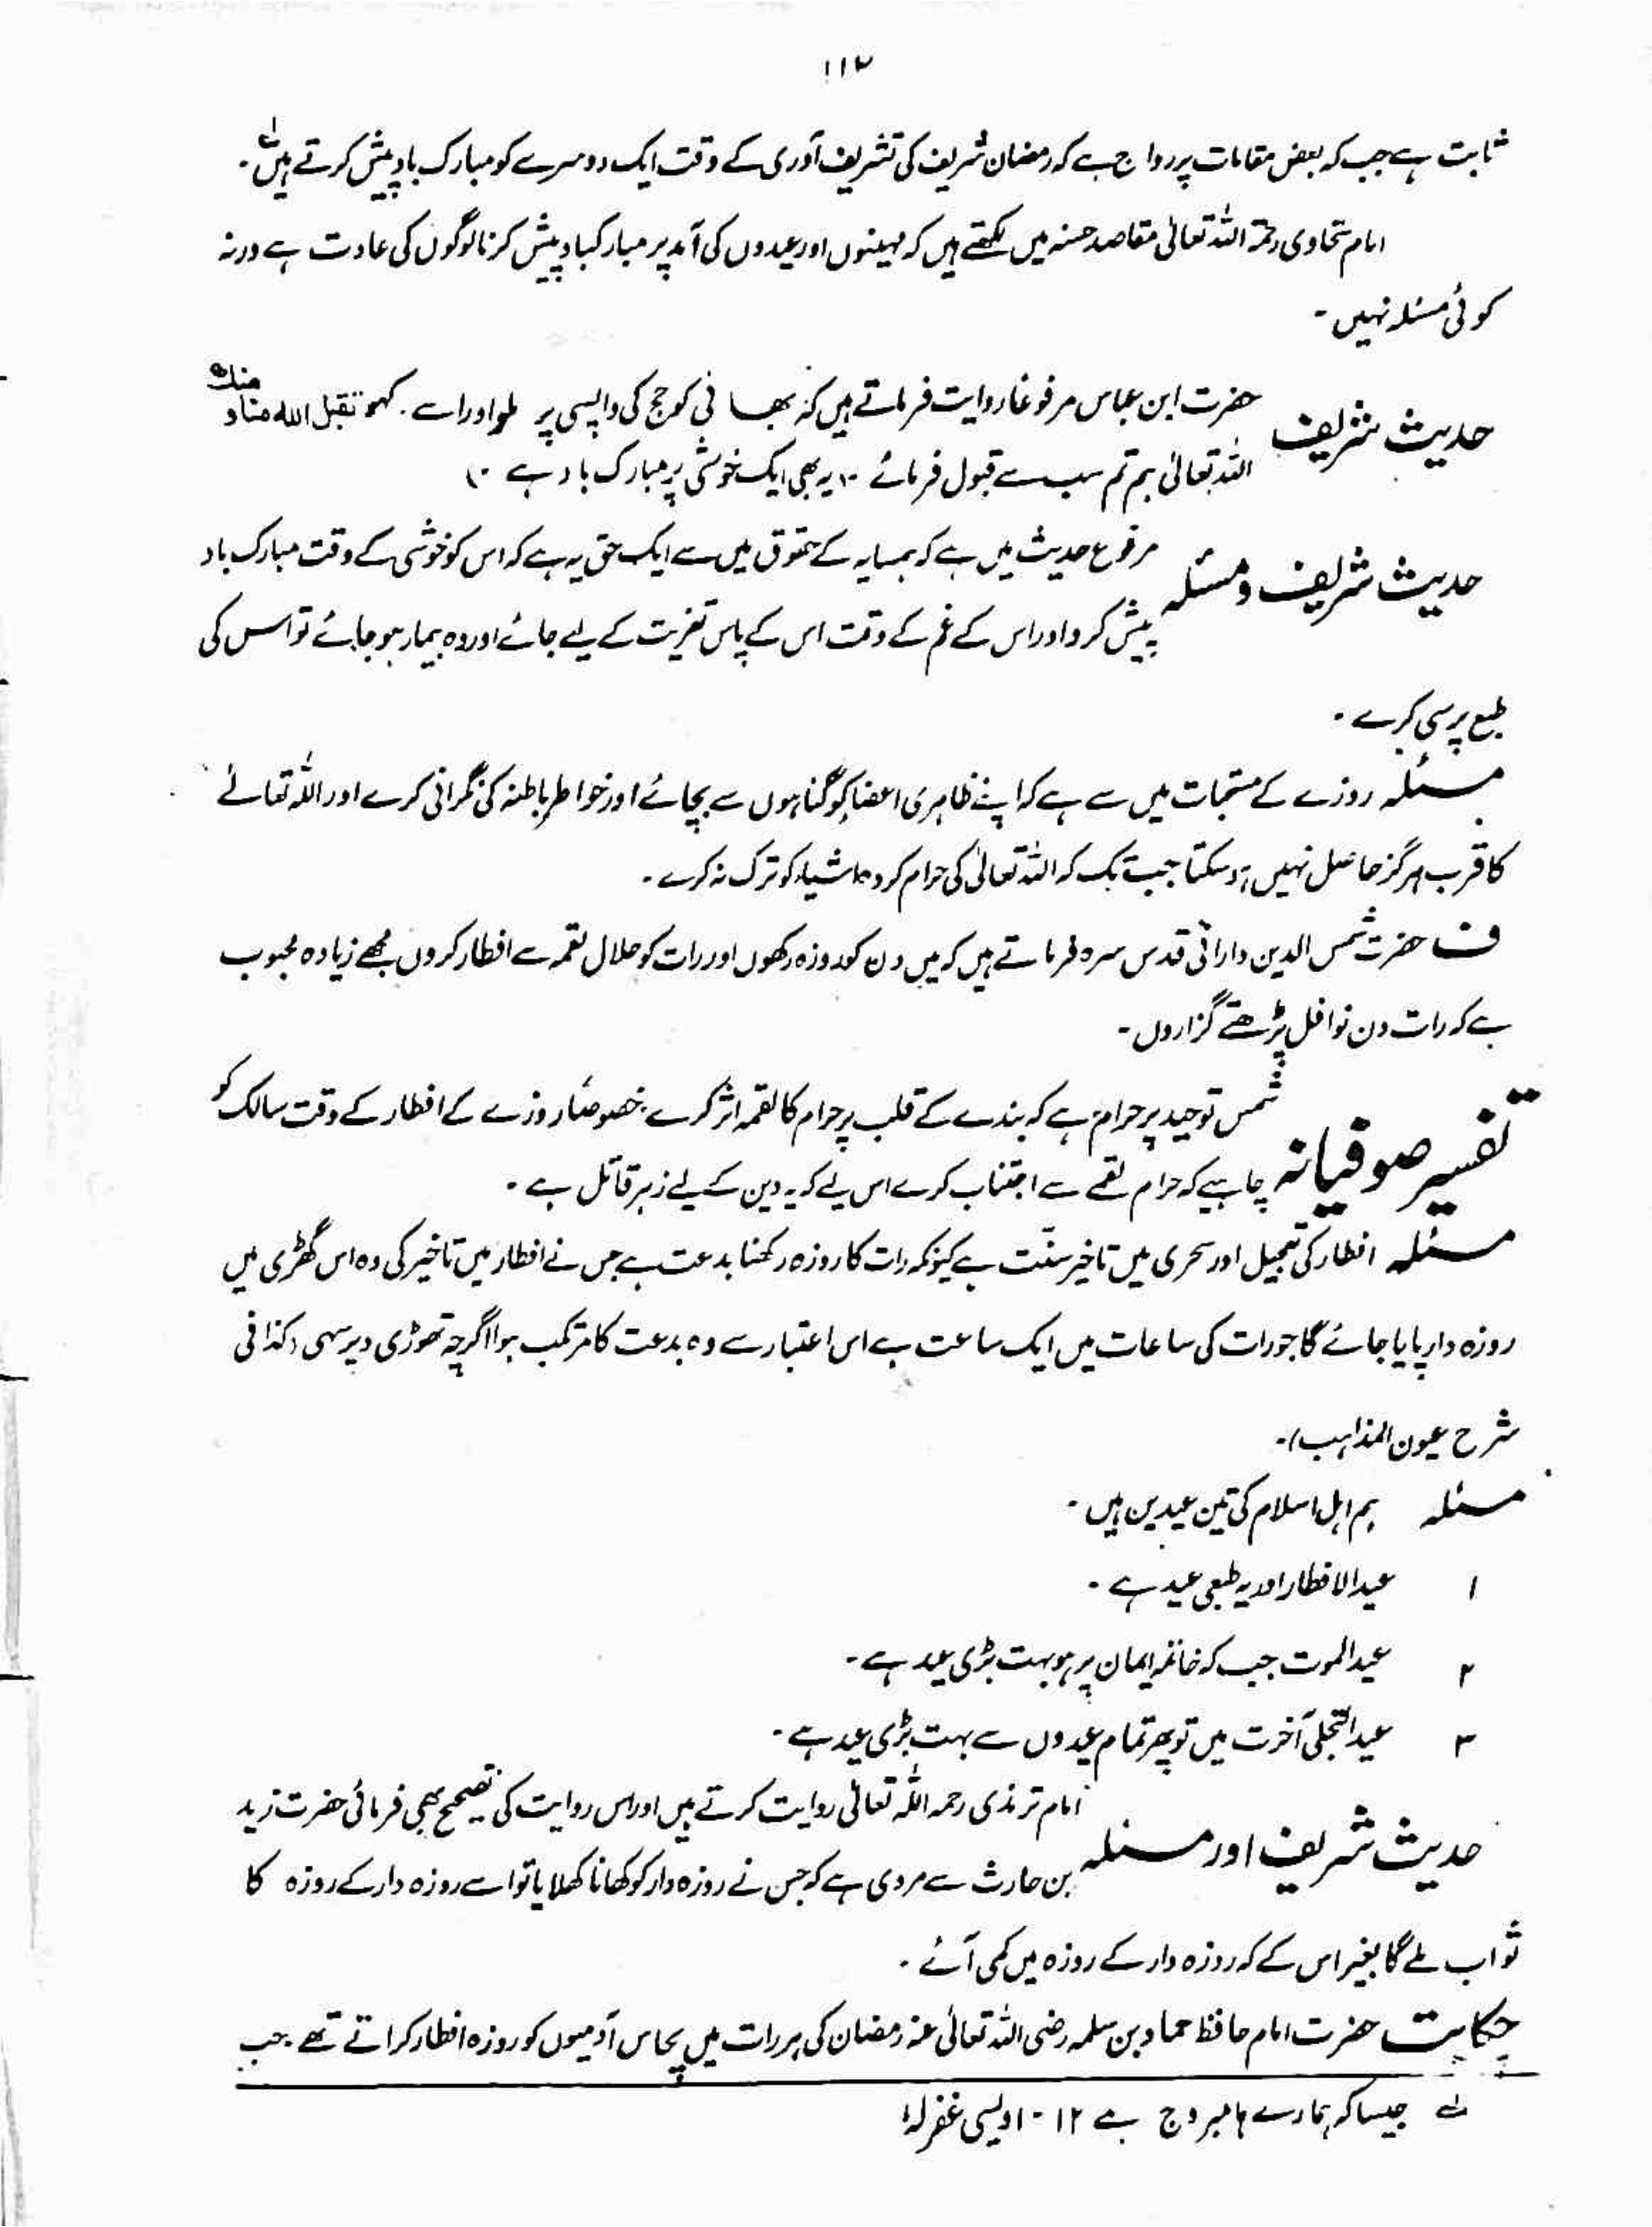 ۱۱۲
ثابت ہے جب کہ بعض مقامات پر رواج ہے کہ رمضان شریف کی تشریف آوری کے وقت ایک دوسرے کو مبارک باد پیش کرتے ہیں لہ۔
امام سخاوی رحمۃ اللہ تعالیٰ مقاصد حسنہ میں لکھتے ہیں کہ مہینوں اور عیدوں کی آمد پر مبارکباد پیش کرنا لوگوں کی عادت ہے ورنہ
کوئی مسئلہ نہیں۔
حدیث شریف حضرت ابن عباس مرفوعًا روایت فرماتے ہیں کہ بھائی کو حج کی واپسی پر ملو اور اسے کہو تقبل اللہ منا و منک
اللہ تعالیٰ ہم تم سب سے قبول فرمائے ۔ یہ بھی ایک خوشی پر مبارک باد ہے ۔)
حدیث شریف و مسئلہ مرفوع حدیث میں ہے کہ ہمسایہ کے حقوق میں سے ایک حق یہ ہے کہ اس کو خوشی کے وقت مبارک باد
پیش کرو اور اس کے غم کے وقت اس کے پاس تعزیت کے لیے جائے اور وہ بیمار ہو جائے تو اس کی
طبع پرسی کرے ۔
مسئلہ روزے کے مستحبات میں سے ہے کہ اپنے ظاہری اعضا کو گناہوں سے بچائے اور خواطر باطنہ کی نگرانی کرے اور اللہ تعالےٰ
کا قرب ہرگز حاصل نہیں ہو سکتا جب تک کہ اللہ تعالیٰ کی حرام کردہ اشیاء کو ترک نہ کرے ۔
ف حضرت شمس الدین دارانی قدس سرہ فرماتے ہیں کہ میں دن کو روزہ رکھوں اور رات کو حلال لقمہ سے افطار کروں مجھے زیادہ محبوب
ہے کہ رات دن نوافل پڑھتے گزاروں ۔
تفسیر صوفیانہ شمس توحید پر حرام ہے کہ بندے کے قلب پر حرام کا لقمہ اثر کرے خصوصًا روزے کے افطار کے وقت سالک کو
چاہیے کہ حرام لقمے سے اجتناب کرے اس لیے کہ یہ دین کے لیے زہر قاتل ہے ۔
مسئلہ افطار کی تعجیل اور سحری میں تاخیر سنّت ہے کیونکہ رات کا روزہ رکھنا بدعت ہے جس نے افطار میں تاخیر کی وہ اس گھڑی میں
روزہ دار پایا جائے گا جو رات کی ساعات میں ایک ساعت ہے اس اعتبار سے وہ بدعت کا مرتکب ہوا اگرچہ تھوڑی دیر سہی (کذا فی
شرح عیون المذاہب)۔
مسئلہ ہم اہل اسلام کی تین عیدیں ہیں ۔
۱ عید الافطار اور یہ طبعی عید ہے ۔
۲ عید الموت جب کہ خاتمہ ایمان پر ہو بہت بڑی عید ہے ۔
۳ عید التجلی آخرت میں تو پھر تمام عیدوں سے بہت بڑی عید ہے ۔
حدیث شریف اور مسئلہ امام ترمذی رحمہ اللہ تعالیٰ روایت کرتے ہیں اور اس روایت کی تصحیح بھی فرمائی حضرت زید
بن حارث سے مروی ہے کہ جس نے روزہ دار کو کھانا کھلایا تو اسے روزہ دار کے روزہ کا
ثواب ملے گا بغیر اس کے کہ روزہ دار کے روزہ میں کمی آئے ۔
حکایت حضرت امام حافظ حماد بن سلمہ رضی اللہ تعالیٰ عنہ رمضان کی ہر رات میں پچاس آدمیوں کو روزہ افطار کراتے تھے جب
لہ جیسا کہ ہمارے ہاں مروج ہے ۱۲ - اویسی غفرلہٗ